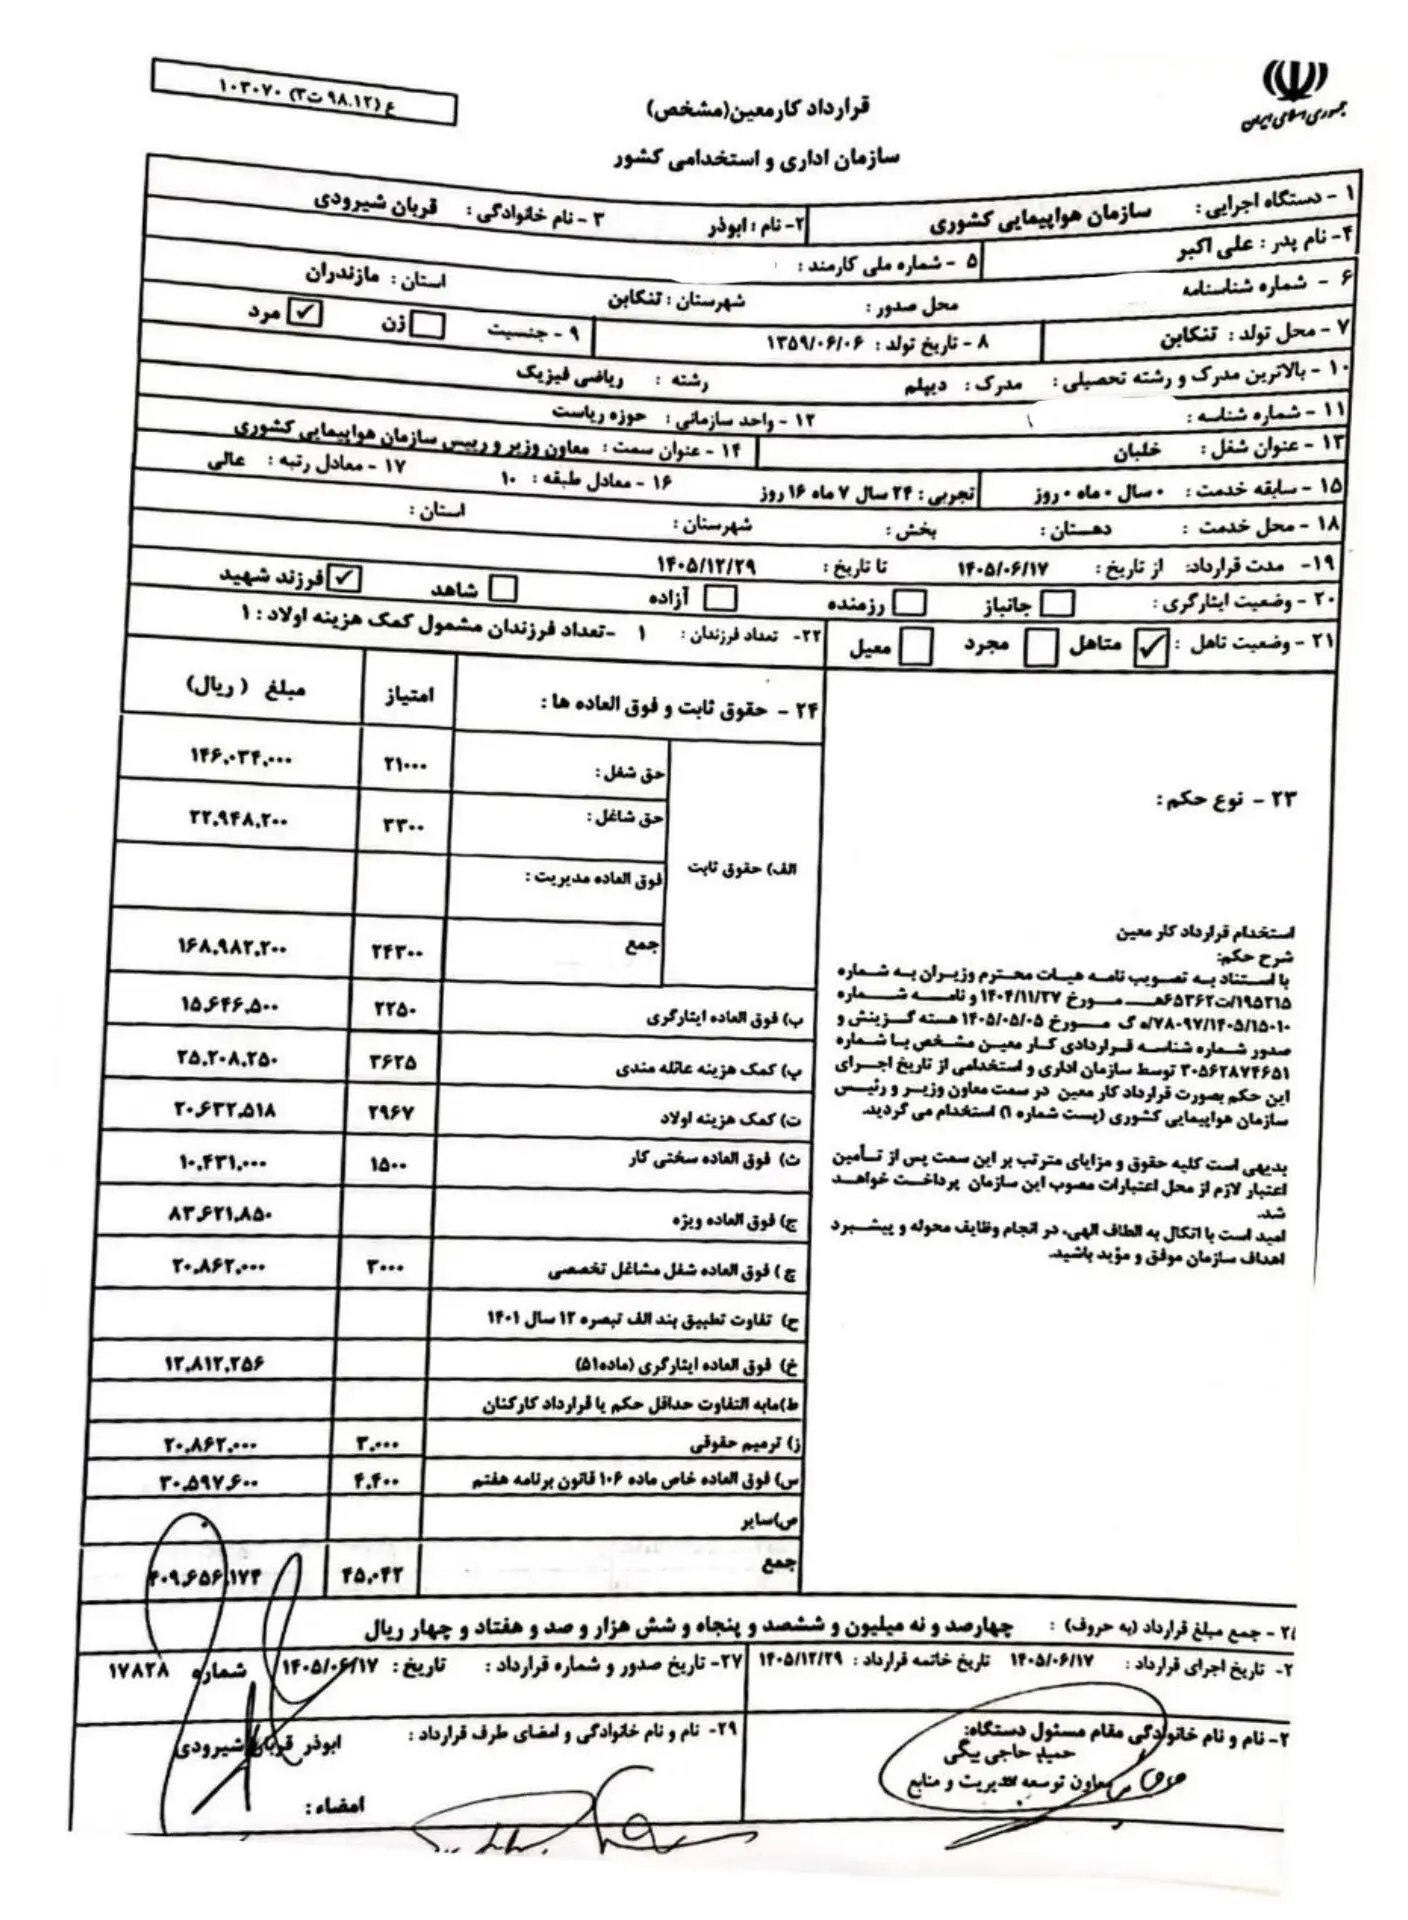 جمهوری اسلامی ایران
ع (۹۸.۱۲ ت۳) ۱۰۳۰۷۰
قرارداد کارمعین(مشخص)
سازمان اداری و استخدامی کشور
۱ - دستگاه اجرایی : سازمان هواپیمایی کشوری ۲- نام : ابوذر ۳ - نام خانوادگی : قربان شیرودی
۴- نام پدر : علی اکبر ۵ - شماره ملی کارمند :
۶ - شماره شناسنامه محل صدور : شهرستان : تنکابن استان : مازندران
۷ - محل تولد : تنکابن ۸ - تاریخ تولد : ۱۳۵۹/۰۶/۰۶ ۹ - جنسیت زن مرد
۱۰ - بالاترین مدرک و رشته تحصیلی : مدرک : دیپلم رشته : ریاضی فیزیک
۱۱ - شماره شناسه : ۱۲ - واحد سازمانی : حوزه ریاست
۱۳ - عنوان شغل : خلبان ۱۴ - عنوان سمت : معاون وزیر و رییس سازمان هواپیمایی کشوری
۱۵ - سابقه خدمت : ۰ سال ۰ ماه ۰ روز تجربی : ۲۴ سال ۷ ماه ۱۶ روز ۱۶ - معادل طبقه : ۱۰ ۱۷ - معادل رتبه : عالی
۱۸ - محل خدمت : دهستان : بخش : شهرستان : استان :
۱۹- مدت قرارداد: از تاریخ : ۱۴۰۵/۰۶/۱۷ تا تاریخ : ۱۴۰۵/۱۲/۲۹
۲۰ - وضعیت ایثارگری : جانباز رزمنده آزاده شاهد فرزند شهید
۲۱ - وضعیت تاهل : متاهل مجرد معیل ۲۲- تعداد فرزندان : ۱ -تعداد فرزندان مشمول کمک هزینه اولاد : ۱
۲۳ - نوع حکم :
استخدام قرارداد کار معین
شرح حکم:
با استناد به تصویب نامه هیات محترم وزیران به شماره
۱۹۵۲۱۵/ت۶۵۳۶۲هـ مورخ ۱۴۰۴/۱۱/۲۷ و نامه شماره
۷۸۰۹۷/۱۴۰۵/۱۵۰۱۰/ه گ مورخ ۱۴۰۵/۰۵/۰۵ هسته گزینش و
صدور شماره شناسه قراردادی کار معین مشخص با شماره
۳۰۵۶۲۸۷۴۶۵۱ توسط سازمان اداری و استخدامی از تاریخ اجرای
این حکم بصورت قرارداد کار معین در سمت معاون وزیر و رئیس
سازمان هواپیمایی کشوری (پست شماره ۱) استخدام می گردید.
بدیهی است کلیه حقوق و مزایای مترتب بر این سمت پس از تأمین
اعتبار لازم از محل اعتبارات مصوب این سازمان پرداخت خواهد
شد.
امید است با اتکال به الطاف الهی، در انجام وظایف محوله و پیشبرد
اهداف سازمان موفق و مؤید باشید.
۲۴ - حقوق ثابت و فوق العاده ها : امتیاز مبلغ (ریال)
الف) حقوق ثابت
حق شغل : ۲۱۰۰۰ ۱۴۶,۰۳۴,۰۰۰
حق شاغل : ۳۳۰۰ ۲۲,۹۴۸,۲۰۰
فوق العاده مدیریت :
جمع ۲۴۳۰۰ ۱۶۸,۹۸۲,۲۰۰
ب) فوق العاده ایثارگری ۲۲۵۰ ۱۵,۶۴۶,۵۰۰
پ) کمک هزینه عائله مندی ۳۶۲۵ ۲۵,۲۰۸,۲۵۰
ت) کمک هزینه اولاد ۲۹۶۷ ۲۰,۶۳۲,۵۱۸
ث) فوق العاده سختی کار ۱۵۰۰ ۱۰,۴۳۱,۰۰۰
ج) فوق العاده ویژه ۸۳,۶۲۱,۸۵۰
چ) فوق العاده شغل مشاغل تخصصی ۳۰۰۰ ۲۰,۸۶۲,۰۰۰
ح) تفاوت تطبیق بند الف تبصره ۱۲ سال ۱۴۰۱
خ) فوق العاده ایثارگری (ماده۵۱) ۱۲,۸۱۲,۲۵۶
ط)مابه التفاوت حداقل حکم یا قرارداد کارکنان
ز) ترمیم حقوقی ۳,۰۰۰ ۲۰,۸۶۲,۰۰۰
س) فوق العاده خاص ماده ۱۰۶ قانون برنامه هفتم ۴,۴۰۰ ۳۰,۵۹۷,۶۰۰
ص)سایر ۰
جمع ۴۵,۰۴۲ ۴۰۹,۶۵۶,۱۷۴
- جمع مبلغ قرارداد (به حروف) : چهارصد و نه میلیون و ششصد و پنجاه و شش هزار و صد و هفتاد و چهار ریال
- تاریخ اجرای قرارداد : ۱۴۰۵/۰۶/۱۷ تاریخ خاتمه قرارداد : ۱۴۰۵/۱۲/۲۹ ۲۷- تاریخ صدور و شماره قرارداد : تاریخ : ۱۴۰۵/۰۶/۱۷ شماره ۱۷۸۲۸
- نام و نام خانوادگی مقام مسئول دستگاه:
حمید حاجی بیگی
معاون توسعه مدیریت و منابع
۲۹- نام و نام خانوادگی و امضای طرف قرارداد : ابوذر قربان شیرودی
امضاء :